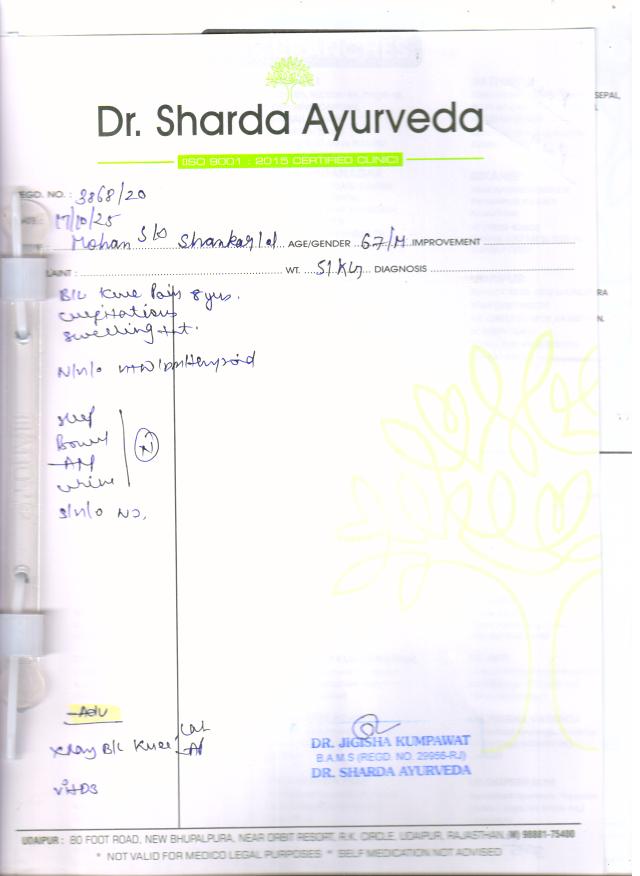 SEPAL,
Dr. Sharda Ayurveda
(ISO 9001 : 2015 CERTIFIED CLINIC)
EGD. NO. : 3868/20
17/10/25
Mohan S/o Shankarlal AGE/GENDER 67/M IMPROVEMENT
LAINT : WT. 51 Kg DIAGNOSIS
RA
B/L Knee Pain 8 yrs.
swelling ++.
N.
Bowel
urine
N
NO.
Adv
Xray B/L Knee Lat AP
vit D3
DR. JIGISHA KUMPAWAT
B.A.M.S (REGD. NO. 29956-RJ)
DR. SHARDA AYURVEDA
UDAIPUR : 80 FOOT ROAD, NEW BHUPALPURA, NEAR ORBIT RESORT, R.K. CIRCLE, UDAIPUR, RAJASTHAN, (M) 98881-75400
* NOT VALID FOR MEDICO LEGAL PURPOSES * SELF MEDICATION NOT ADVISED